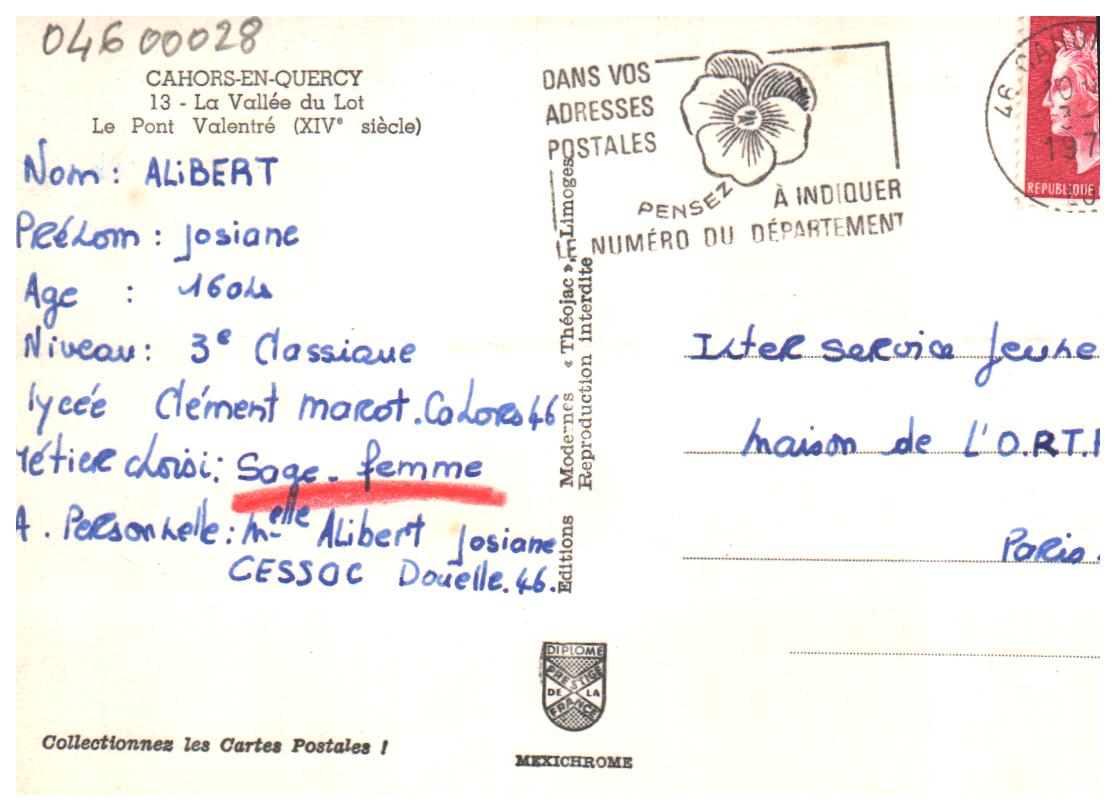 046 00028
CAHORS-EN-QUERCY
13 - La Vallée du Lot
Le Pont Valentré (XIVe siècle)
Nom : ALiBERT
Prénom : Josiane
Age : 16 ans
Niveau : 3e Classique
lycée Clément Marot. Cahors 46
Métier choisi : Sage-femme
A. Personnelle : Melle ALibert Josiane
CESSAC Douelle. 46.
Collectionnez les Cartes Postales !
Editions Modernes « Théojac », Limoges
Reproduction interdite
DIPLOME
PRESTIGE
DE LA
FRANCE
MEXICHROME
DANS VOS
ADRESSES
POSTALES
PENSEZ À INDIQUER
LE NUMÉRO DU DÉPARTEMENT
46 CAHO
197
REPUBLIQUE
Inter Service Jeune
Maison de L'O.R.T.F
Paris.